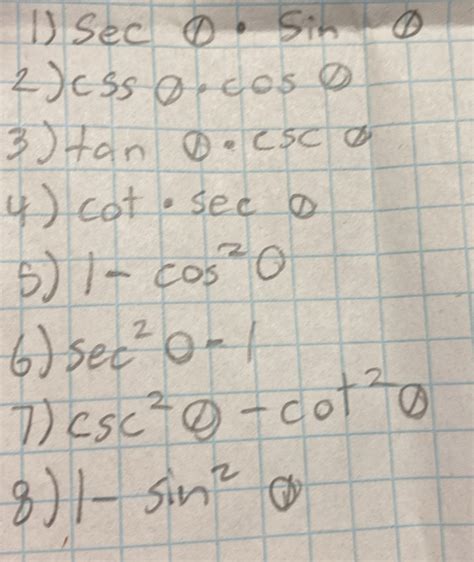 1) sec θ · sin θ
2) css θ · cos θ
3) tan θ · csc θ
4) cot · sec θ
5) 1 - cos² θ
6) sec² θ - 1
7) csc² θ - cot² θ
8) 1 - sin² θ